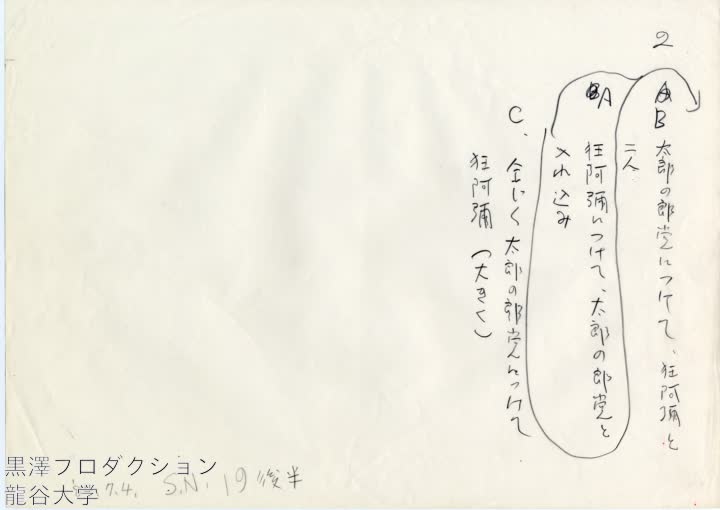 2
B 太郎の郎党につけて、狂阿彌と
二人
A 狂阿彌につけて、太郎の郎党と
入れ込み
C. 全じく太郎の郎党につけて
狂阿彌(大きく)
7.4. S.N. 19 後半
黒澤プロダクション
龍谷大学